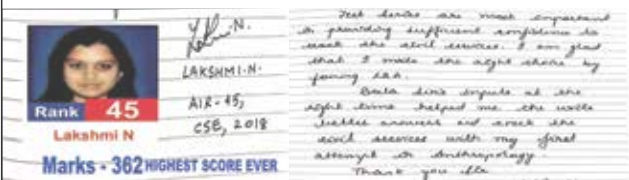 N.
LAKSHMI.N.
AIR-45,
CSE, 2018
Rank 45
Lakshmi N
Marks - 362 HIGHEST SCORE EVER
Test Series are most important
in providing sufficient confidence to
crack the civil services. I am glad
that I made the right choice by
joining
Bala Sir's inputs at the
right time helped me write
better answers and crack the
civil services with my first
attempt in Anthropology.
Thank you